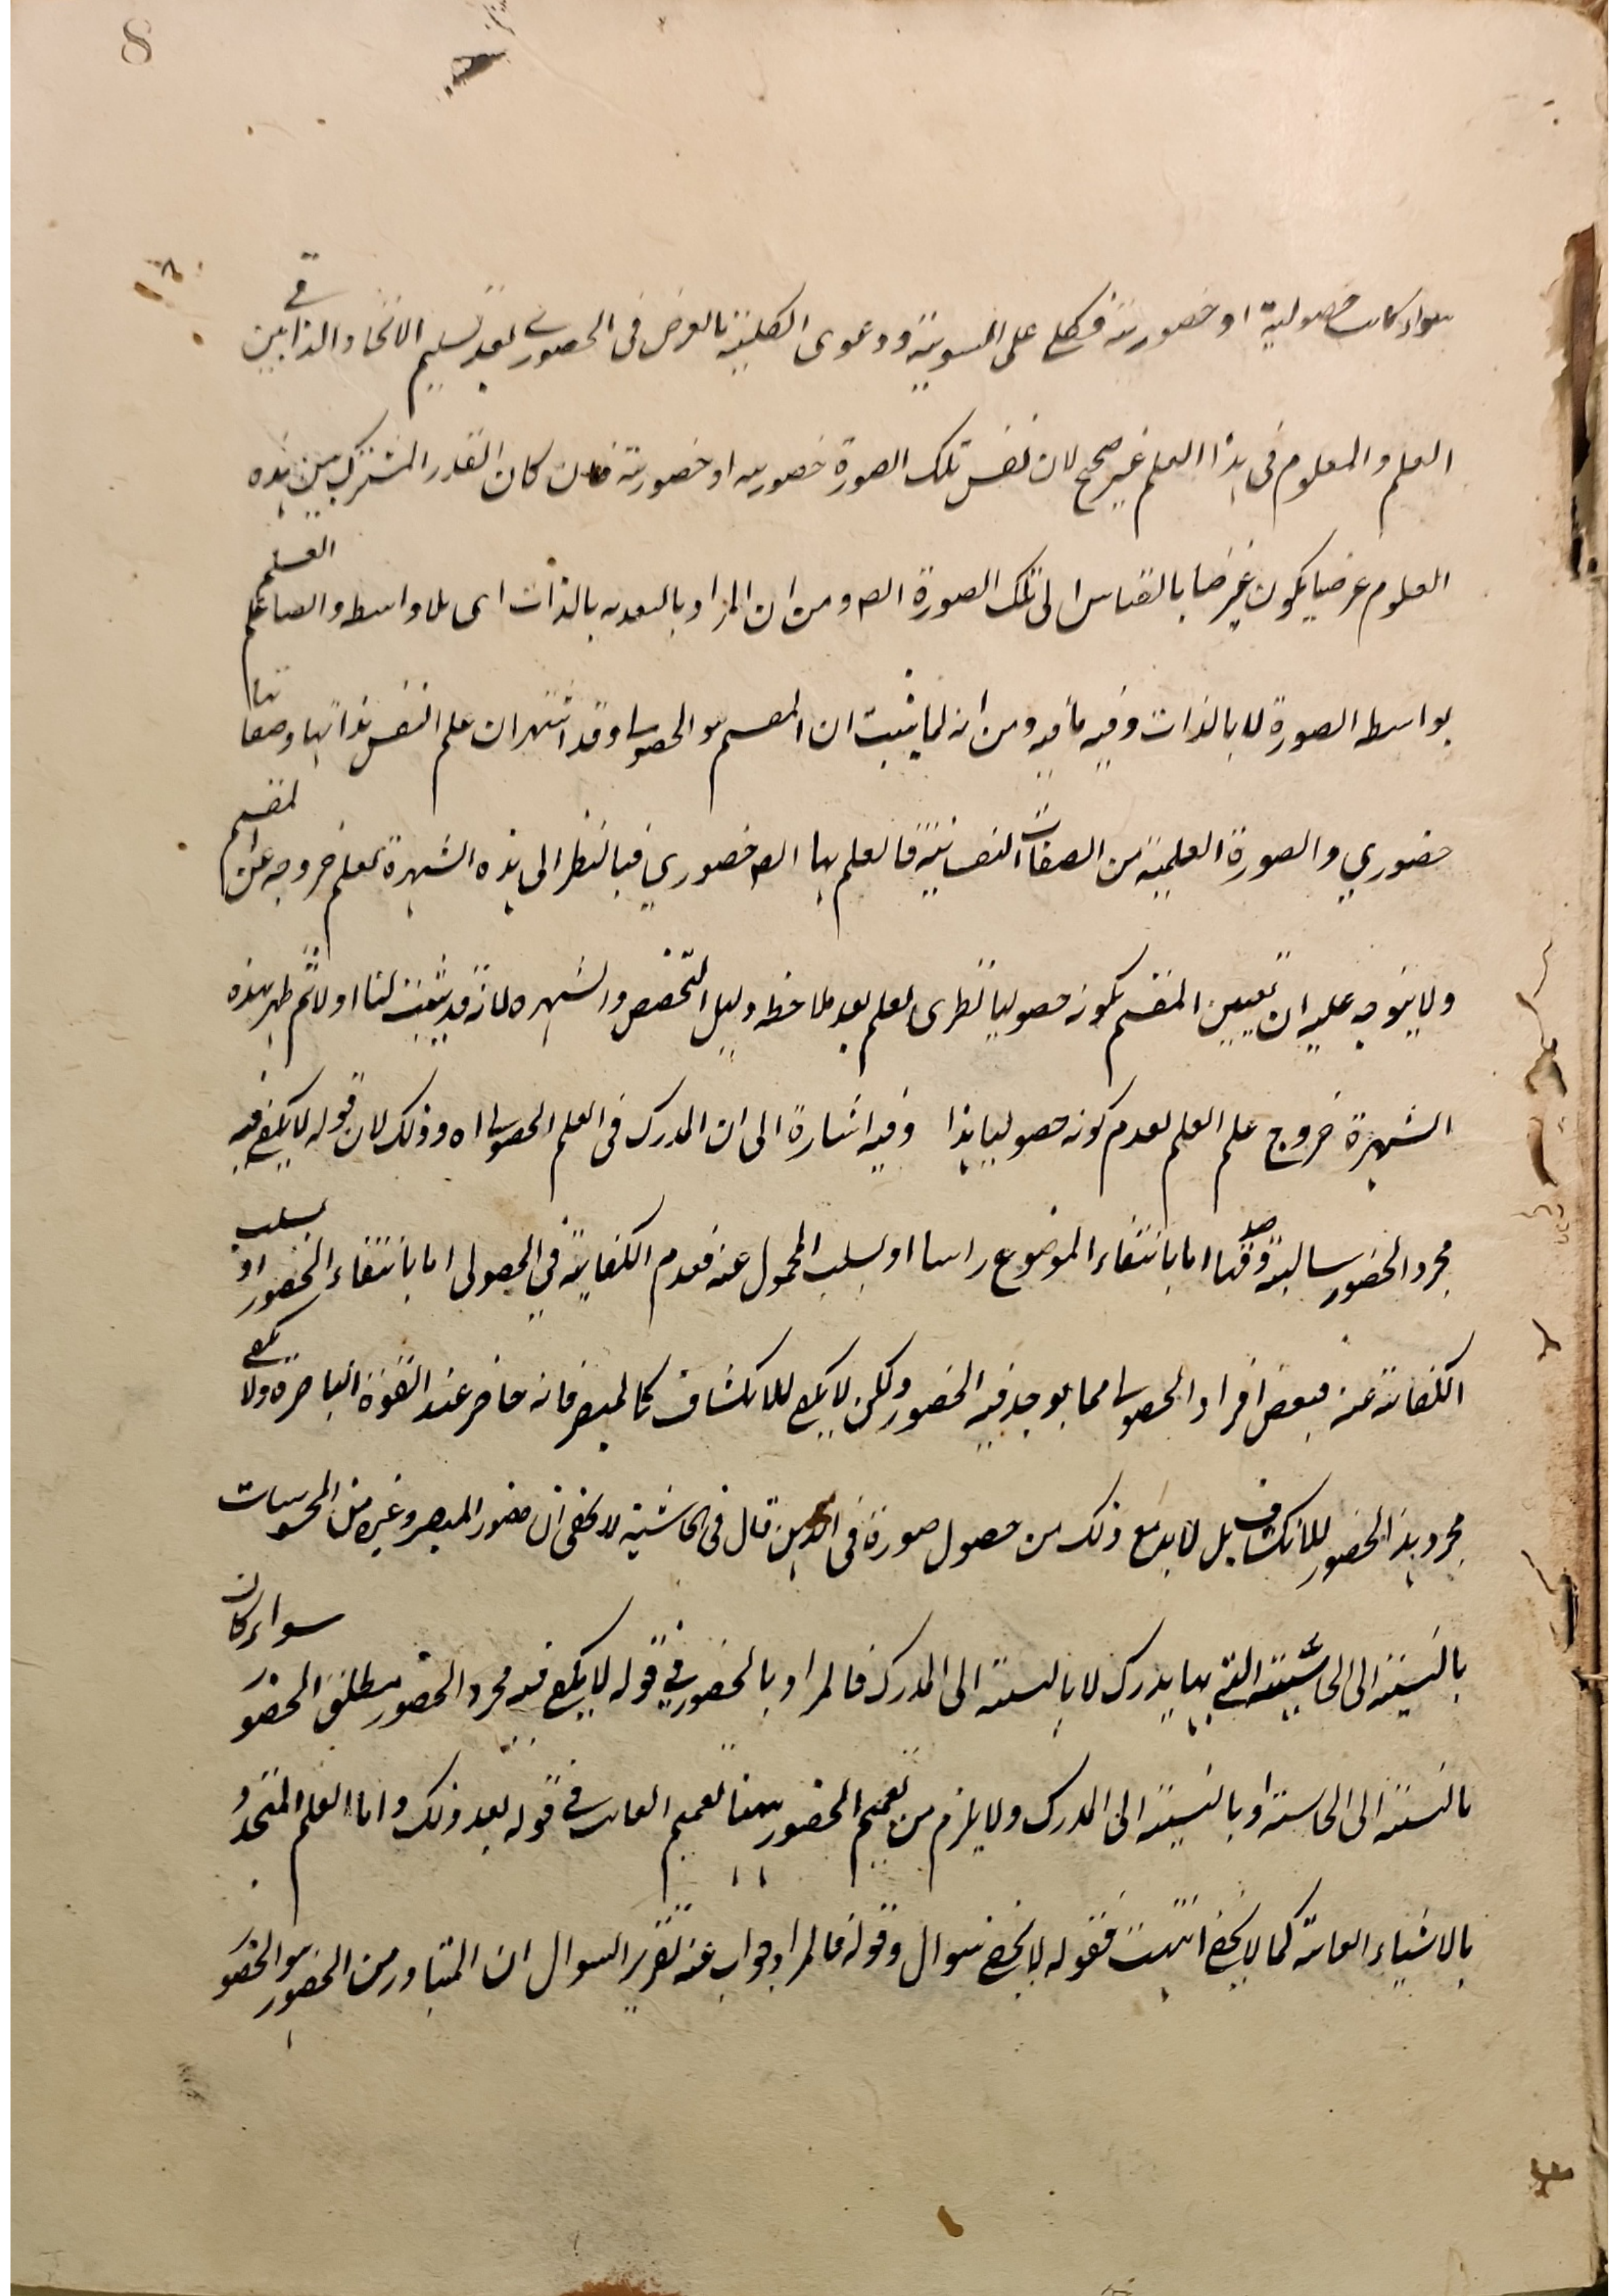 8
سواء كانت حصولية او حضورية فكلي على السوية ودعوى الكلية بالعرض فى الحضوري بعد تسليم الاتحاد الذاتي بين
العلم والمعلوم فى هذا العلم غير صحيح لان نفس تلك الصورة حضورية او حضورية فان كان القدر المشترك بين هذه
العلوم عرضيا يكون عرضيا بالقياس الى تلك الصورة ايضا ومن ان المراد بالبعدية بالذات اى بلا واسطه وايضا علم العلم
بواسطه الصورة لا بالذات وفيه ما فيه ومن انه لما يثبت ان المقسم هو الحصولى وقد اشتهر ان علم النفس بذاتها وصفاتها
حضوري والصورة العلمية من الصفات النفسانية فالعلم بها ايضا حضوري فبالنظر الى هذه الشهرة يعلم خروجه عن المقسم
ولا يتوجه عليه ان تعيين المقسم بكونه حصوليا نظرى يعلم بعد ملاحظه دليل التخصيص والشهره لانه قد يثبت لنا اولا ثم ظهر بهذه
الشهرة خروج علم العلم لعدم كونه حصوليا هذا وفيه اشارة الى ان المدرك فى العلم الحصولى اه وذلك لان قوله لا يكفي فيه
مجرد الحضور سالبة وصدقها اما بانتفاء الموضوع راسا او بسلب المحمول عنه فعدم الكفاية في الحصولى اما بانتفاء الحضور او بسلب
الكفاية عنه فبعض افراد الحصولى مما يوجد فيه الحضور ولكن لا يكفي للانكشاف كالمبصر فانه حاضر عند القوة الباصرة ولا يكفي
مجرد هذا الحضور للانكشاف بل لا بد مع ذلك من حصول صورة فى الذهن قال فى الحاشية لا يخفى ان حضور المبصر وغيره من المحسوسات
بالنسبة الى الحاسة التي بها يدرك لا بالنسبة الى المدرك فالمراد بالحضور في قوله لا يكفي فيه مجرد الحضور مطلق الحضور سواء كان
بالنسبة الى الحاسة او بالنسبة الى المدرك ولا يلزم من تعميم الحضور ههنا تعميم الغائب في قوله بعد ذلك واما العلم المتجدد
بالاشياء الغائبة كما لا يخفى انتهت فقوله لا يخفى سوال وقوله فالمراد جواب عنه تقرير السوال ان المتبادر من الحضور هو الحضور